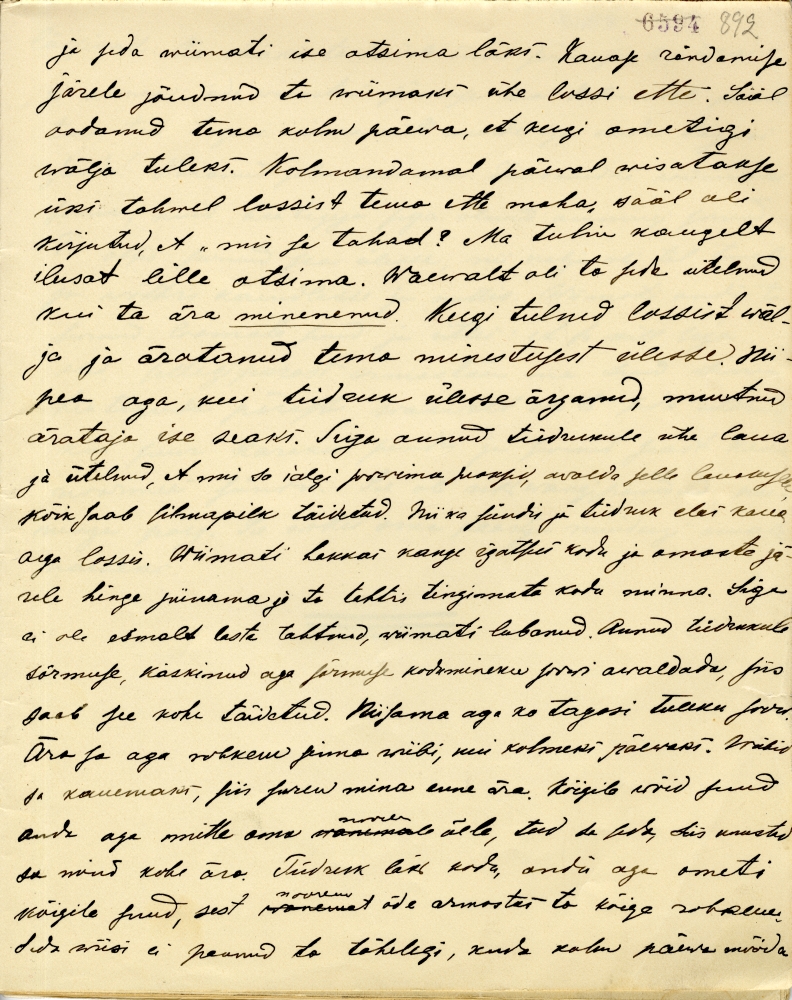 6594 892
ja seda wiimati ise otsima läks. Kauase rändamise
järele jõudnud ta wiimaks ühe lossi ette. Sääl
oodanud tema kolm päewa, et keegi ometigi
wälja tuleks. Kolmandamal päewal wisatakse
üks tahwel lossist tema ette maha, sääl oli
kirjutud, et „mis sa tahad? Ma tulin kaugelt
ilusat lille otsima. Waewalt oli ta seda ütelnud
kui ta ära minenenud. Keegi tulnud lossist wäl-
ja ja äratanud tema minestusest ülesse. Nii-
pea aga, kui tüdruk ülesse ärganud, muutnud
ärataja ise seaks. Siga annud tüdrukule ühe laua
ja ütelnud, et mis sa ialgi soowima peaksid, awalda selle lauakesele
kõik saab silmapilk täidetud. Nii ka sündis ja tüdruk elas kaua
aega lossis. Wiimati hakkas kange igatsus kodu ja omaste jä-
rele hinge piinama ja ta tahtis tingimata kodu minna. Siga
ei ole esmalt lasta tahtnud, wiimati lubanud. Annud tüdrukule
sõrmuse, käskinud aga sõrmuse kodumineku soowi awaldada, siis
saab see kohe täidetud. Niisama aga ka tagasi tuleku soowi.
Ära sa aga rohkem sinna wiibi, kui kolmeks päewaks. Wiibid
sa kauemaks, siis suren mina enne ära. Kõigile wõid suud
anda aga mitte oma wanemale noorem õele, teed sa seda, siis unustad
sa mind kohe ära. Tüdruk läks kodu, andis aga ometi
kõigile suud, sest wanemat noorem õde armastas ta kõige rohkem.
Seda wiisi ei pannud ta tähelegi, kuda kolm päewa mööda